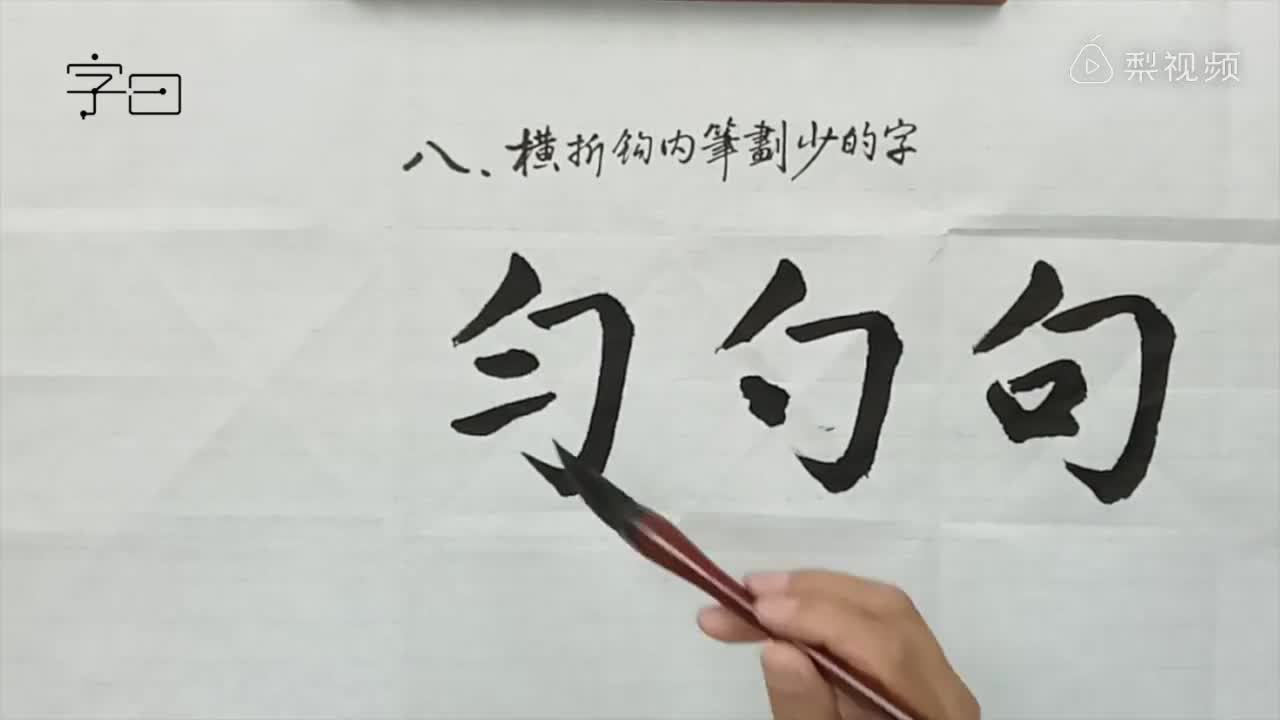 字曰
梨视频
八、橫折钩内筆劃少的字
匀勺句